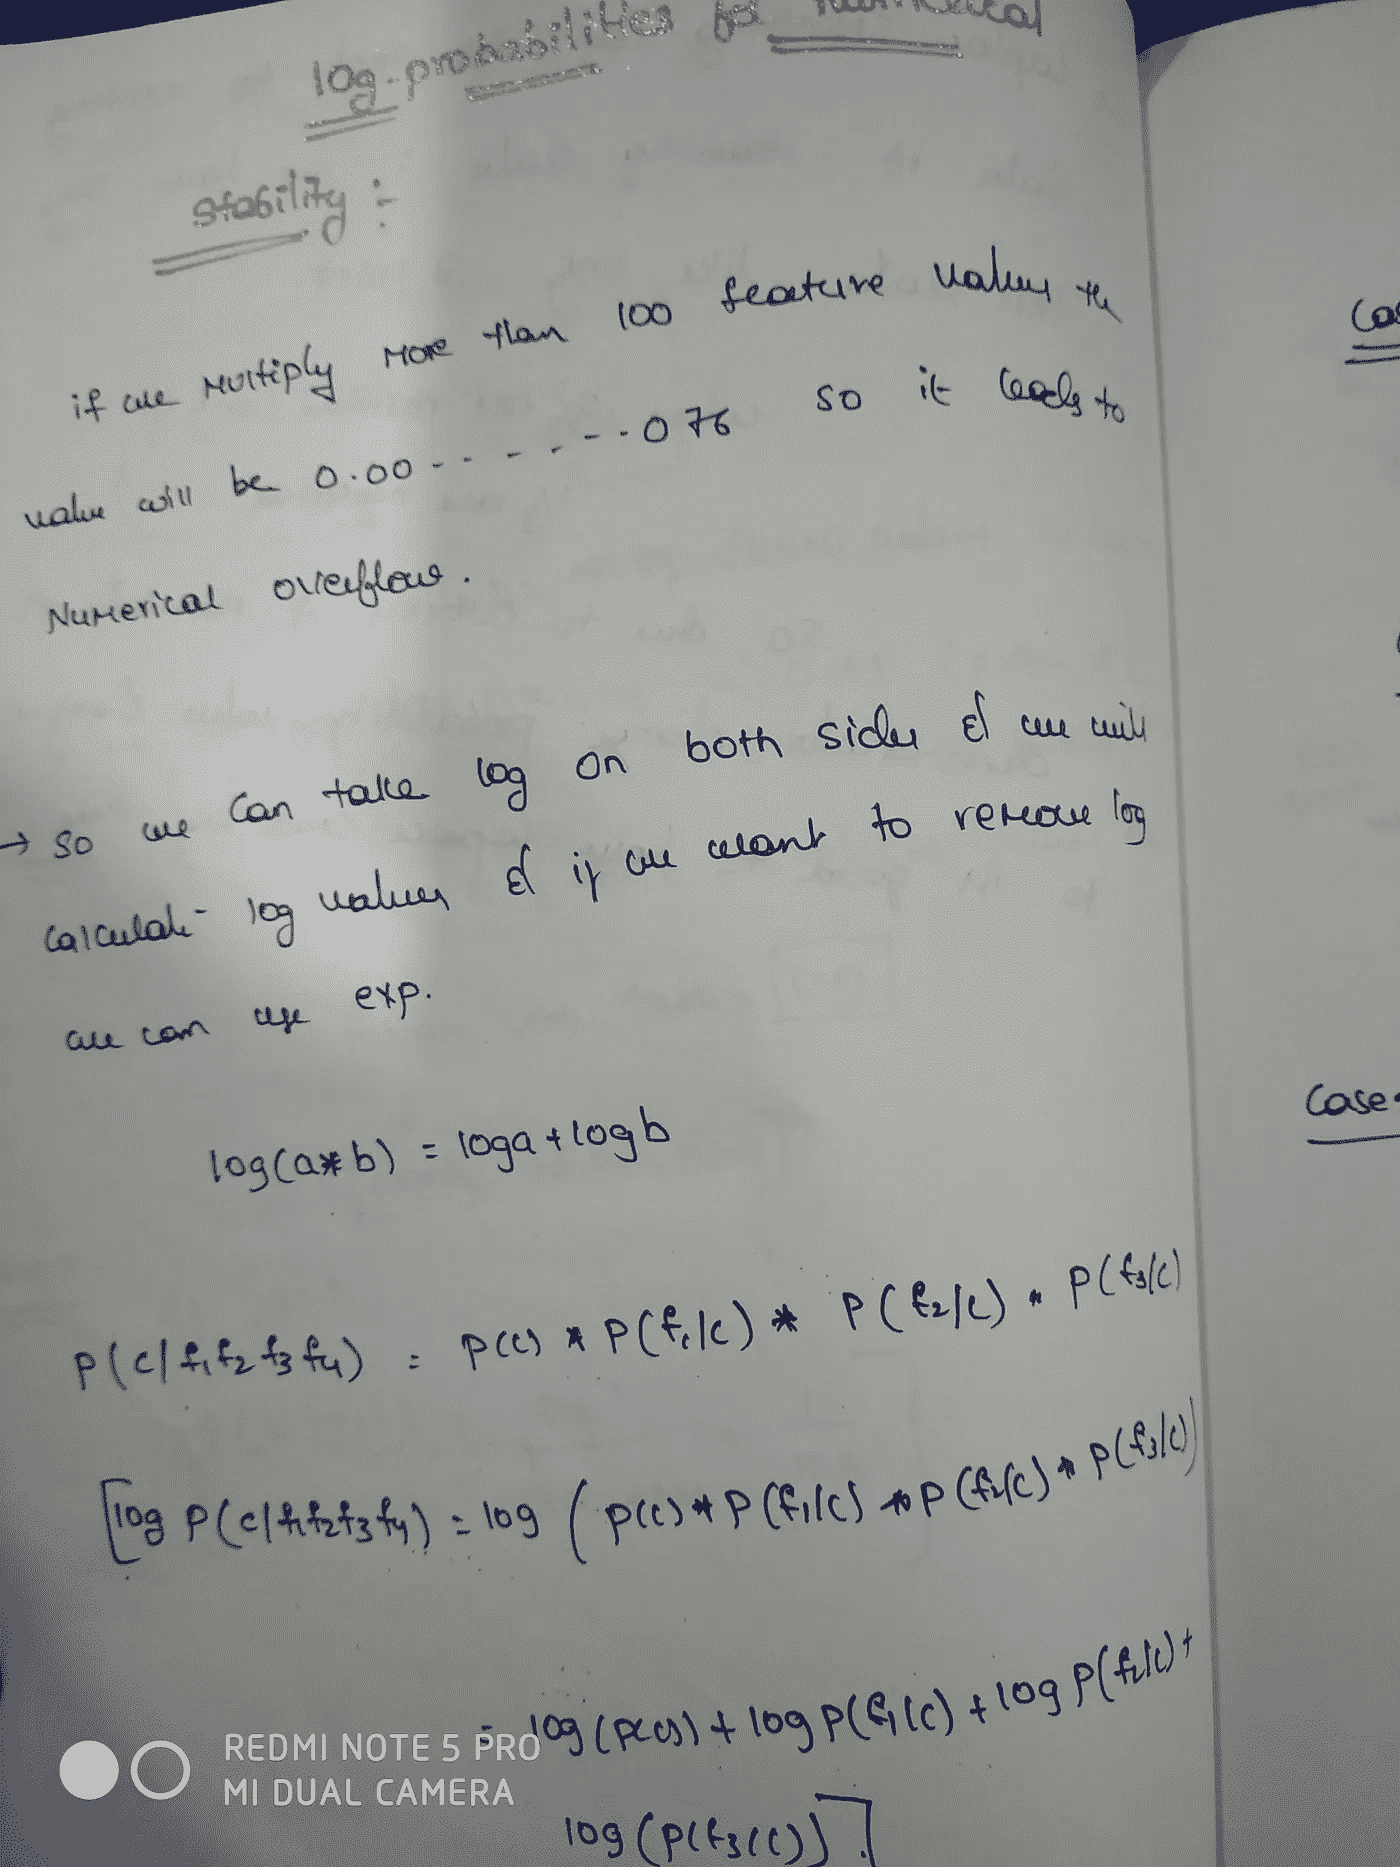 log-probabilities for numerical
stability :-
if we multiply more than 100 feature values the
value will be 0.00-------076 so it leads to
Numerical overflow.
→ so we can take log on both sides & we will
calculate log values & if we want to remove log
we can use exp.
log(a*b) = loga+logb
P(c/f₁f₂f₃f₄) = P(c) * P(f₁/c) * P(f₂/c) * P(f₃/c)
[log P(c/f₁f₂f₃f₄) = log (P(c)*P(f₁/c)*P(f₂/c)*P(f₃/c)
= log(P(c)) + log P(f₁/c) + log P(f₂/c) +
log(P(f₃/c))]
Case
REDMI NOTE 5 PRO
MI DUAL CAMERA